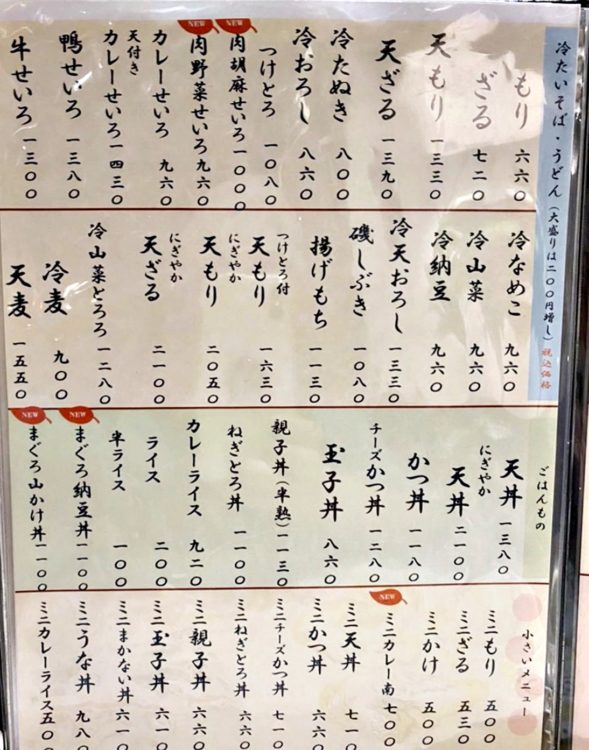 冷たいそば・うどん（大盛りは二〇〇円増し）税込価格
もり 六六〇
ざる 七二〇
天もり 一三三〇
天ざる 一三九〇
冷たぬき 八〇〇
冷おろし 八六〇
つけとろ 一〇八〇
NEW
肉胡麻せいろ 一〇〇〇
NEW
肉野菜せいろ 九六〇
カレーせいろ 九六〇
天付き
カレーせいろ 一四三〇
鴨せいろ 一三八〇
牛せいろ 一三〇〇
冷なめこ 九六〇
冷山菜 九六〇
冷納豆 九六〇
冷天おろし 一三三〇
磯しぶき 一〇八〇
揚げもち 一一三〇
つけとろ付
天もり 一六三〇
にぎやか
天もり 二〇五〇
にぎやか
天ざる 二一〇〇
冷山菜とろろ 一二八〇
冷麦 九〇〇
天麦 一五五〇
ごはんもの
天丼 一三八〇
にぎやか
天丼 二一〇〇
かつ丼 一一八〇
チーズかつ丼 一二八〇
玉子丼 八六〇
親子丼（半熟）一一三〇
ねぎとろ丼 一一〇〇
カレーライス 九二〇
ライス 二〇〇
半ライス 一〇〇
NEW
まぐろ納豆丼 一一〇〇
NEW
まぐろ山かけ丼 一一〇〇
小さいメニュー
ミニもり 五〇〇
ミニざる 五三〇
ミニかけ 五〇〇
NEW
ミニカレー南 七〇〇
ミニ天丼 七一〇
ミニかつ丼 六六〇
ミニチーズかつ丼 七一〇
ミニねぎとろ丼 六六〇
ミニ親子丼 六六〇
ミニ玉子丼 六一〇
ミニまかない丼 六一〇
ミニうな丼 九八〇
ミニカレーライス 五〇〇